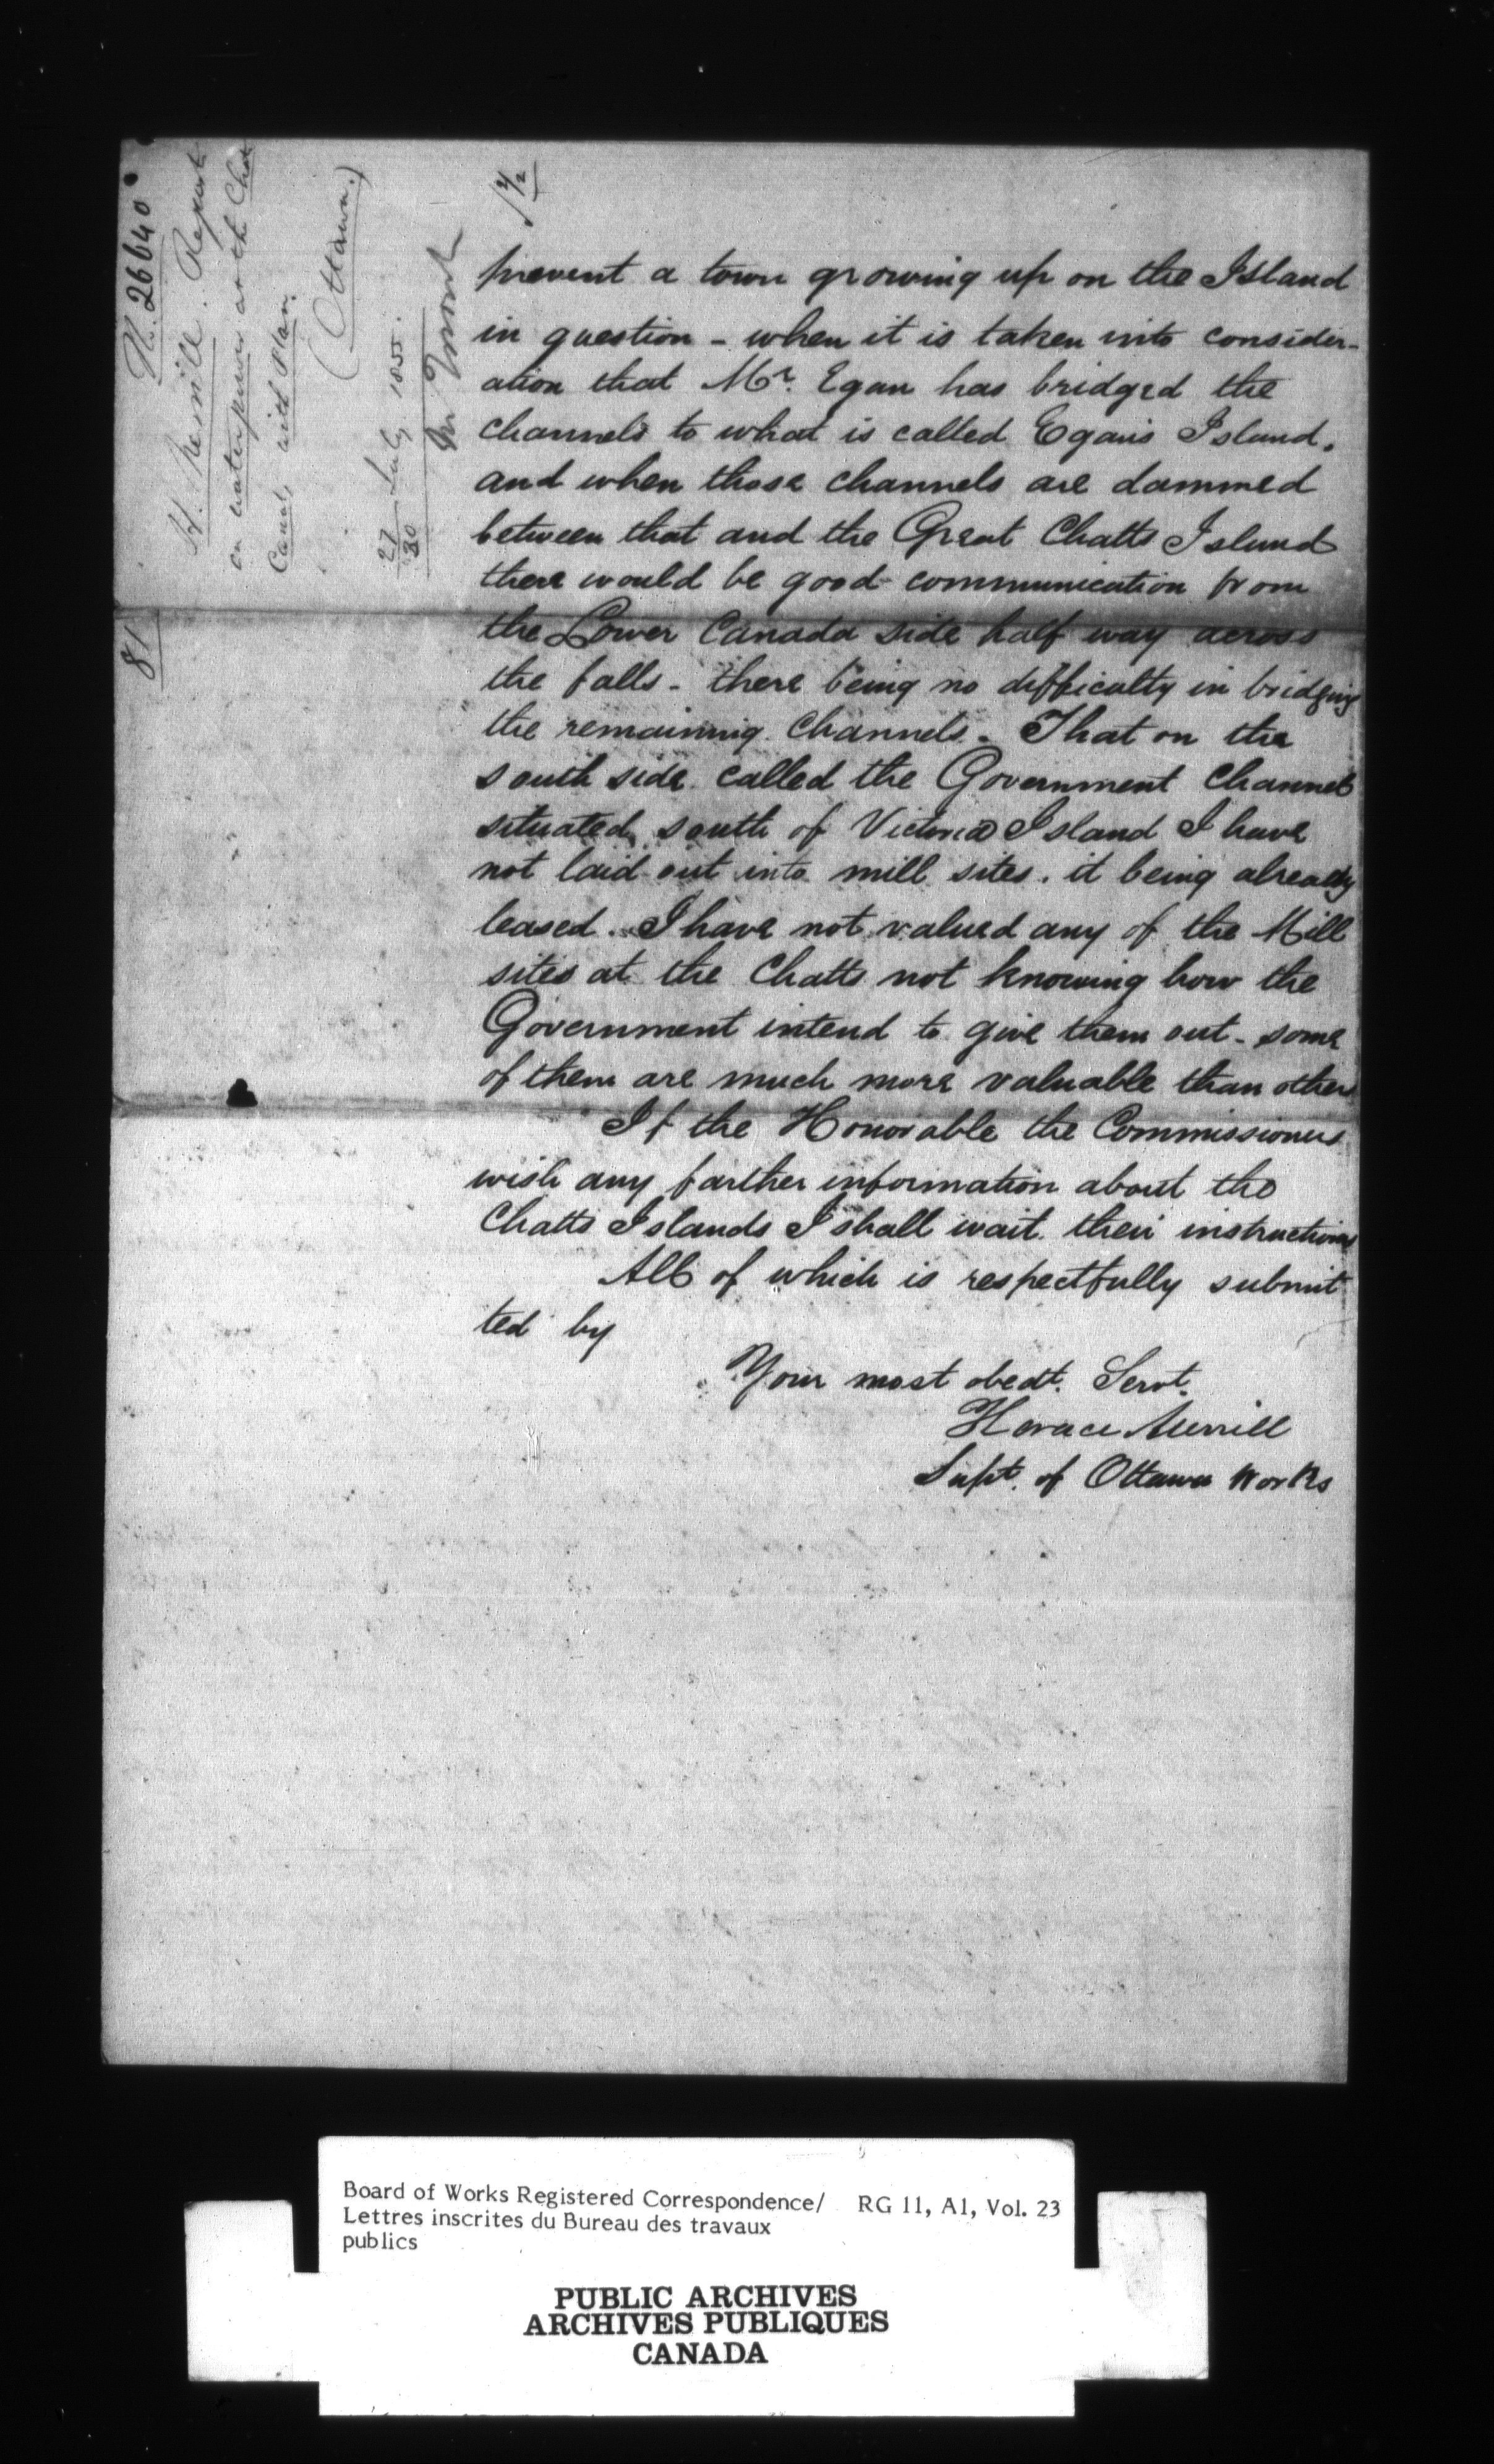 No. 26640
H. Merrill. Report
on waterpower at the Chat
Canal, with Plan.
(Ottawa.)
27/30 July 1855.
81
prevent a town growing up on the Island
in question - when it is taken into consider-
ation that Mr. Egan has bridged the
channels to what is called Egan's Island.
and when those channels are dammed
between that and the Great Chatts Island
there would be good communication from
the Lower Canada side half way across
the falls - there being no difficulty in bridging
the remaining channels. That on the
south side called the Government Channel
situated south of Victoria Island I have
not laid out into mill sites. it being already
leased. I have not valued any of the Mill
sites at the Chatts not knowing how the
Government intend to give them out - some
of them are much more valuable than others
If the Honorable the Commissioners
wish any farther information about the
Chatts Islands I shall wait their instructions
All of which is respectfully submit
ted by
Your most obedt. Servt.
Horace Merrill
Supt. of Ottawa Works
Board of Works Registered Correspondence/ RG 11, A1, Vol. 23
Lettres inscrites du Bureau des travaux
publics
PUBLIC ARCHIVES
ARCHIVES PUBLIQUES
CANADA